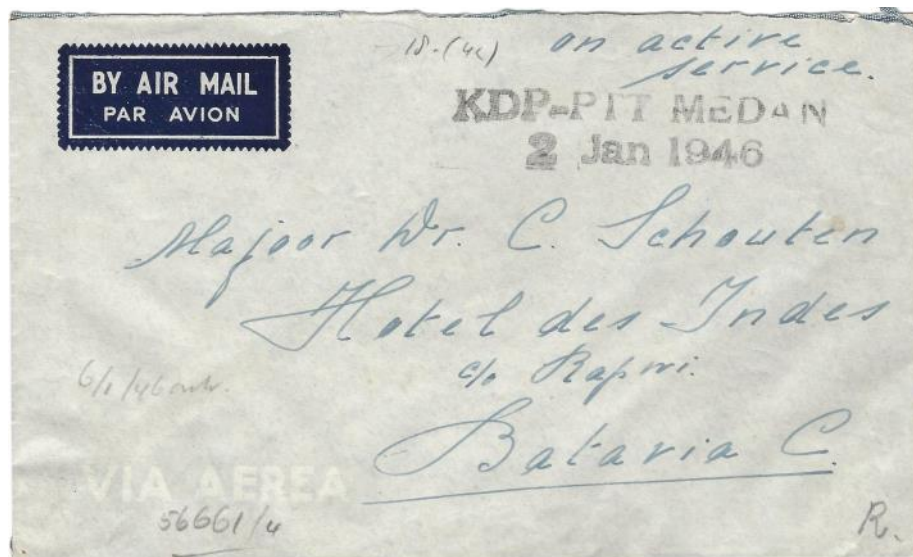 BY AIR MAIL
PAR AVION
18.-(4c)
on active
service.
KDP-PTT MEDAN
2 Jan 1946
Majoor Dr. C. Schouten
Hotel des Indes
c/o Rapwi.
Batavia C.
6/1/46
VIA AEREA
56661/4
R.